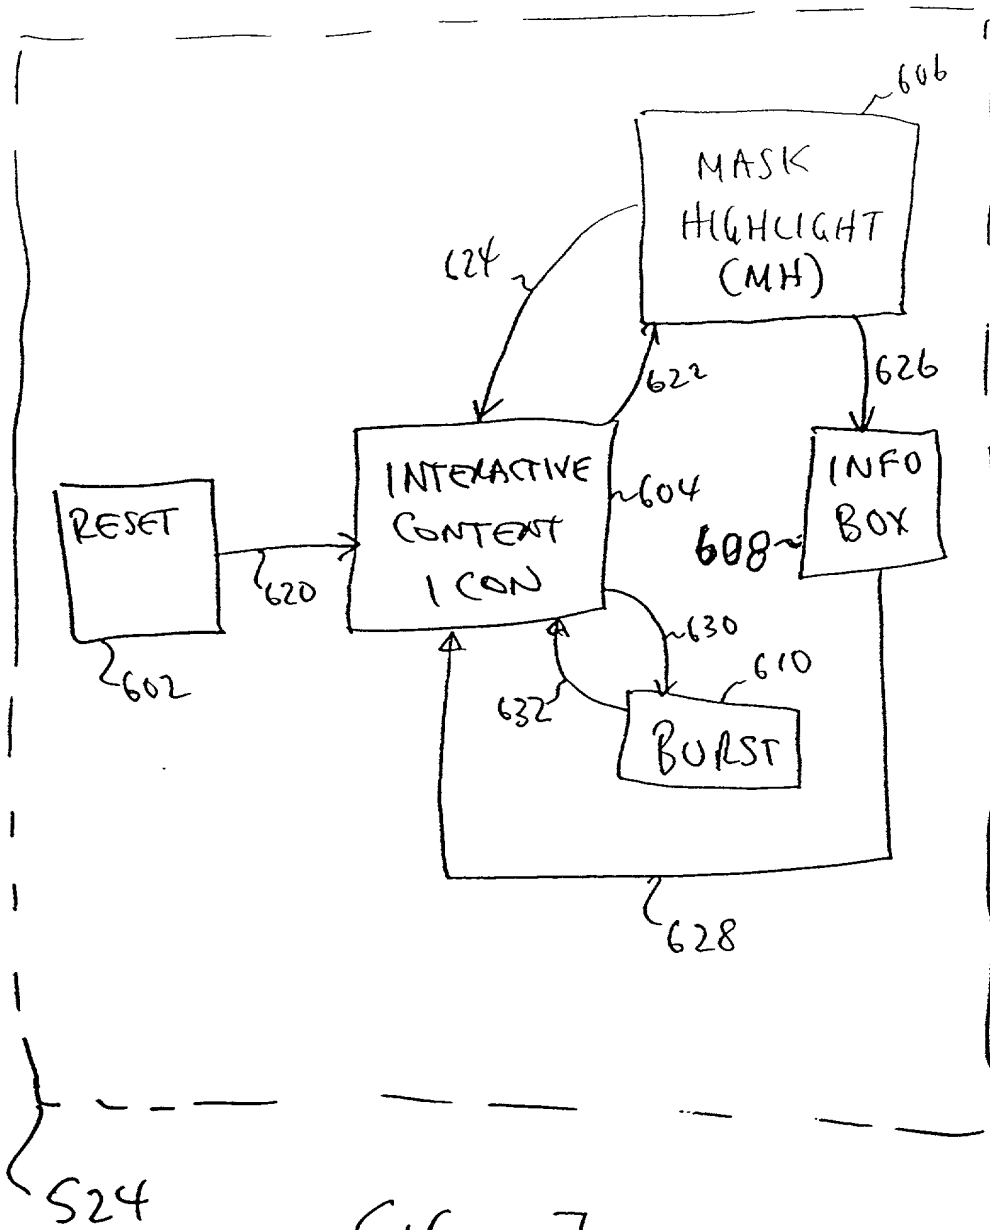 606
MASK
HIGHLIGHT
(MH)
624
622
626
INTERACTIVE
CONTENT
ICON
604
INFO
BOX
608
RESET
620
602
630
632
610
BURST
628
524